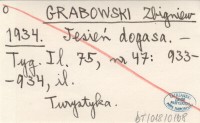 o GRABOWSKI Zbigniew
1934. Jesień dogasa. –
Tyg. Il. 75, nr 47: 933-
-934, il.
Turystyka.